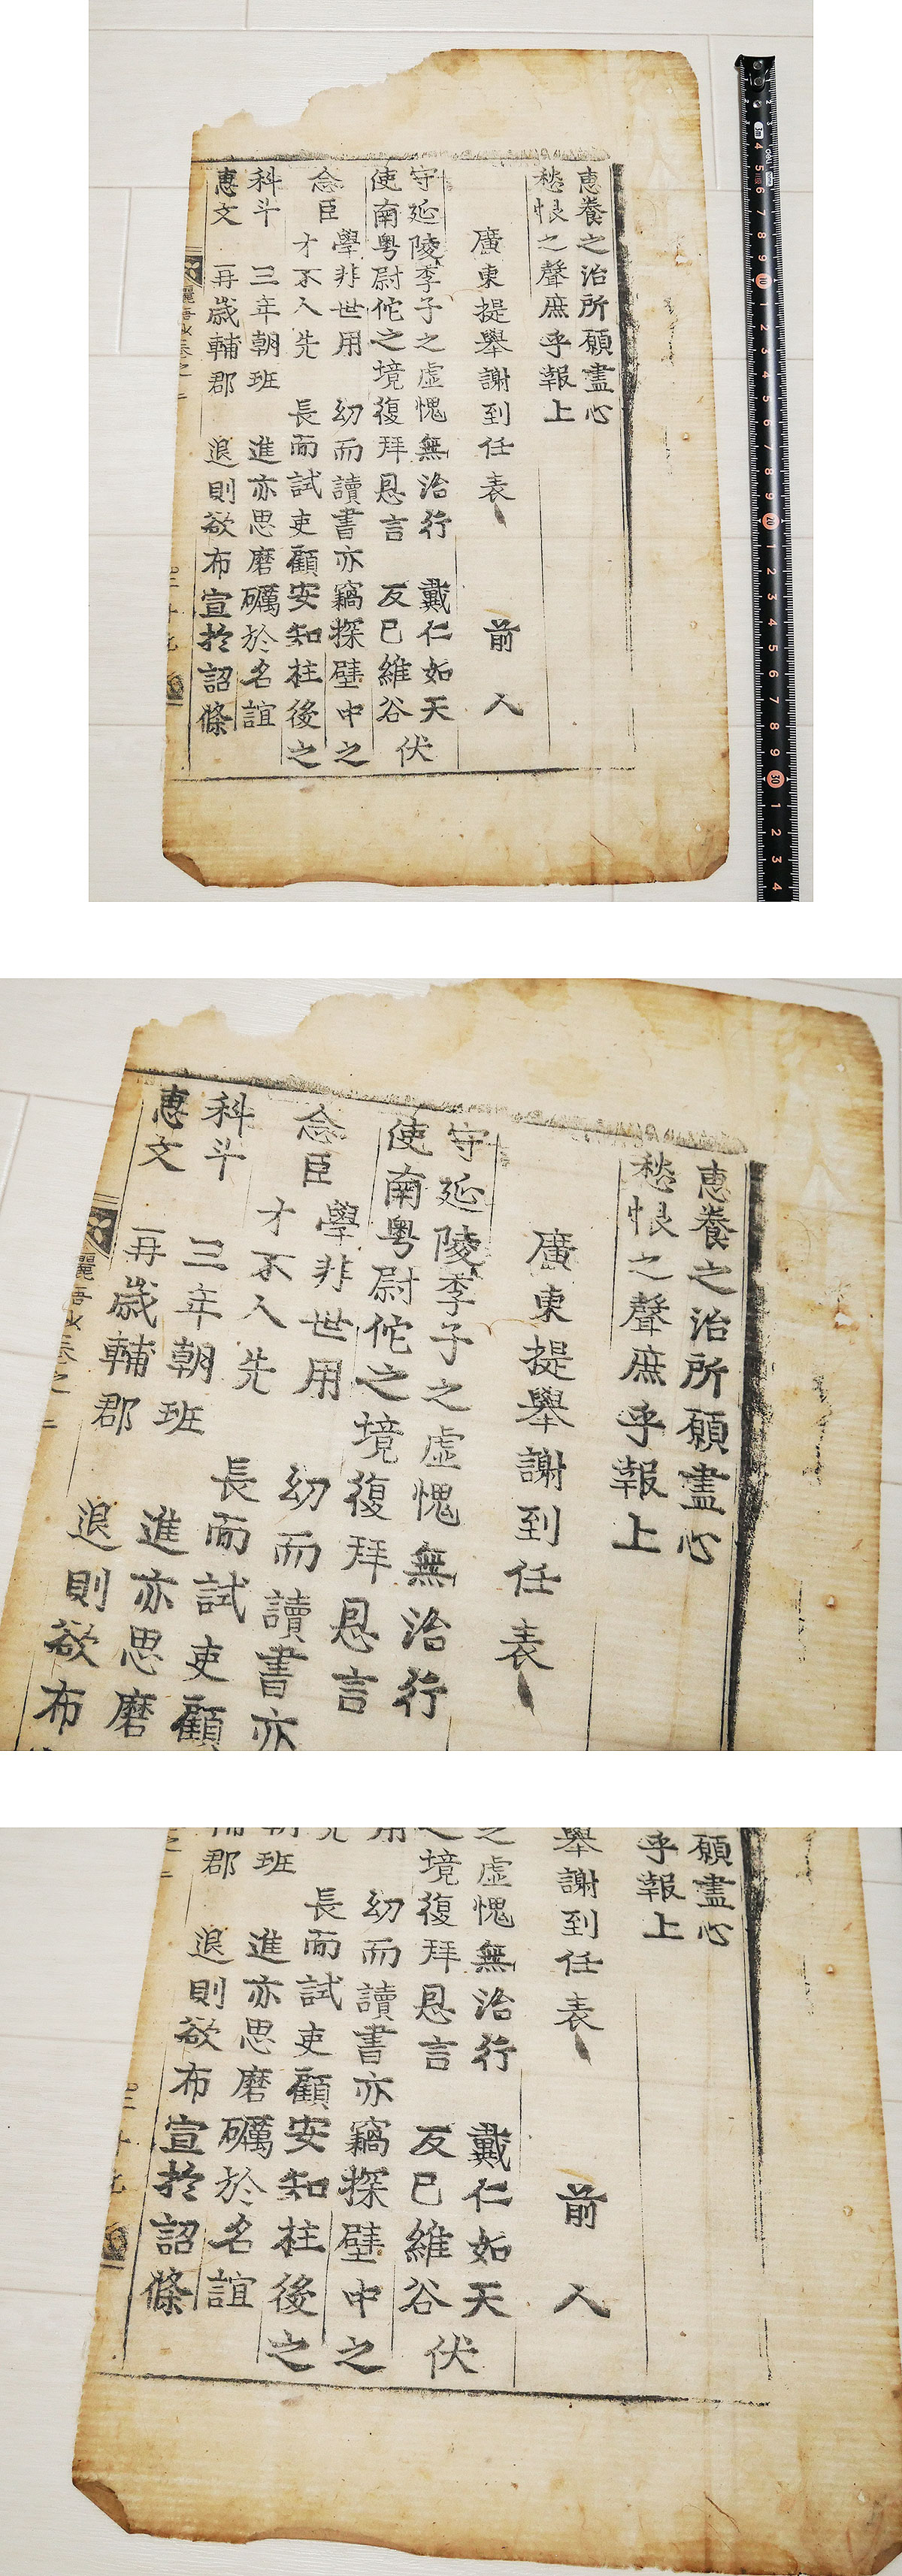 惠養之治所願盡心
愁恨之聲庶乎報上
廣東提舉謝到任表 前人
守延陵季子之虛愧無治行 戴仁如天
使南粤尉佗之境復拜恩言 反已維谷
伏
念臣
學非世用 幼而讀書亦竊探壁中之
才不入先 長而試吏顧安知柱後之
科斗 三年朝班 進亦思磨礪於名誼
惠文 再歲輔郡 退則欲布宣於詔條
卷之二